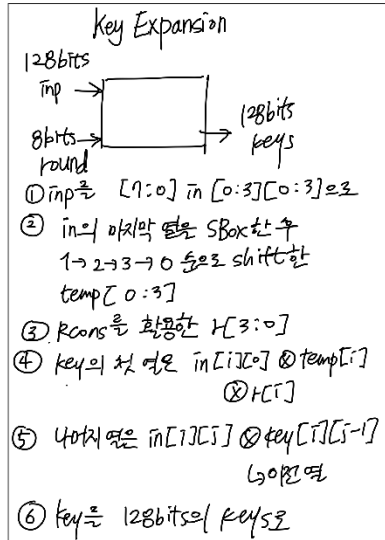 Key Expansion
128bits
inp
8bits
round
128bits
keys
① inp를 [7:0] in [0:3][0:3]으로
② in의 마지막 열을 SBox한 후
1→2→3→0 순으로 shift한
temp[0:3]
③ Rcons를 활용한 r[3:0]
④ key의 첫 열은 in[i][0] ⊗ temp[i]
⊗ r[i]
⑤ 나머지 열은 in[i][j] ⊗ key[i][j-1]
↳이전 열
⑥ key를 128bits의 keys로